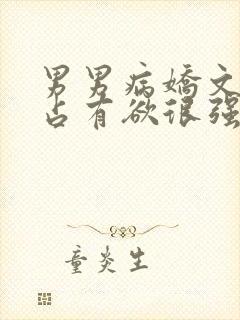 男男病娇文
占有欲很强
童炎生